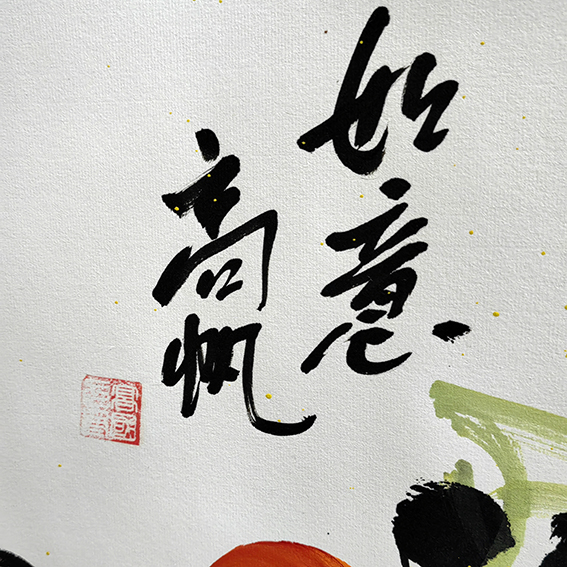 如意
高帆